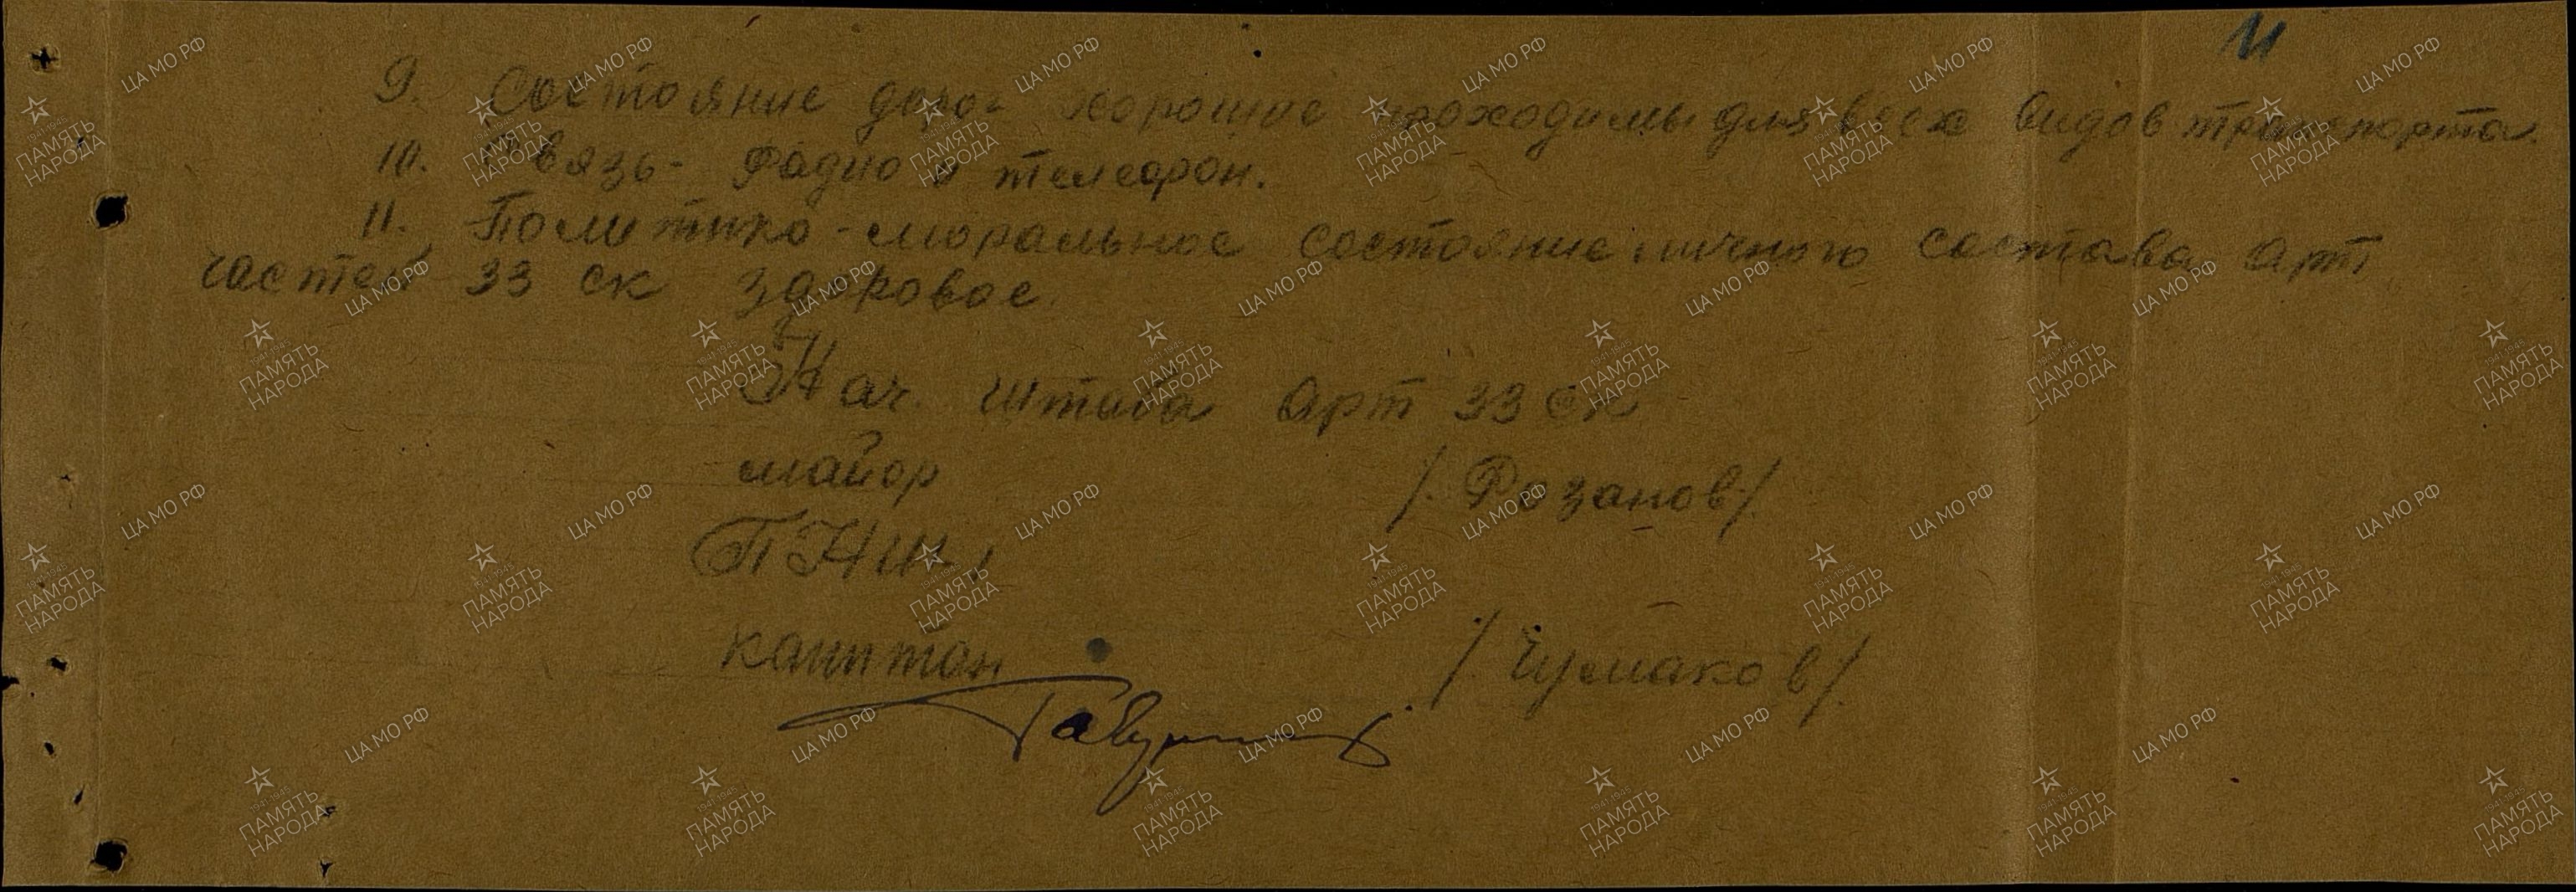 11
9. Состояние дорог хорошие проходимы для всех видов транспорта.
10. Связь - Радио и телефон.
11. Политико-моральное состояние личного состава арт
частей 33 ск здоровое.
Нач. штаба арт 33 ск
майор /. Розанов/.
ПНШ1
капитан /. Чумаков/.